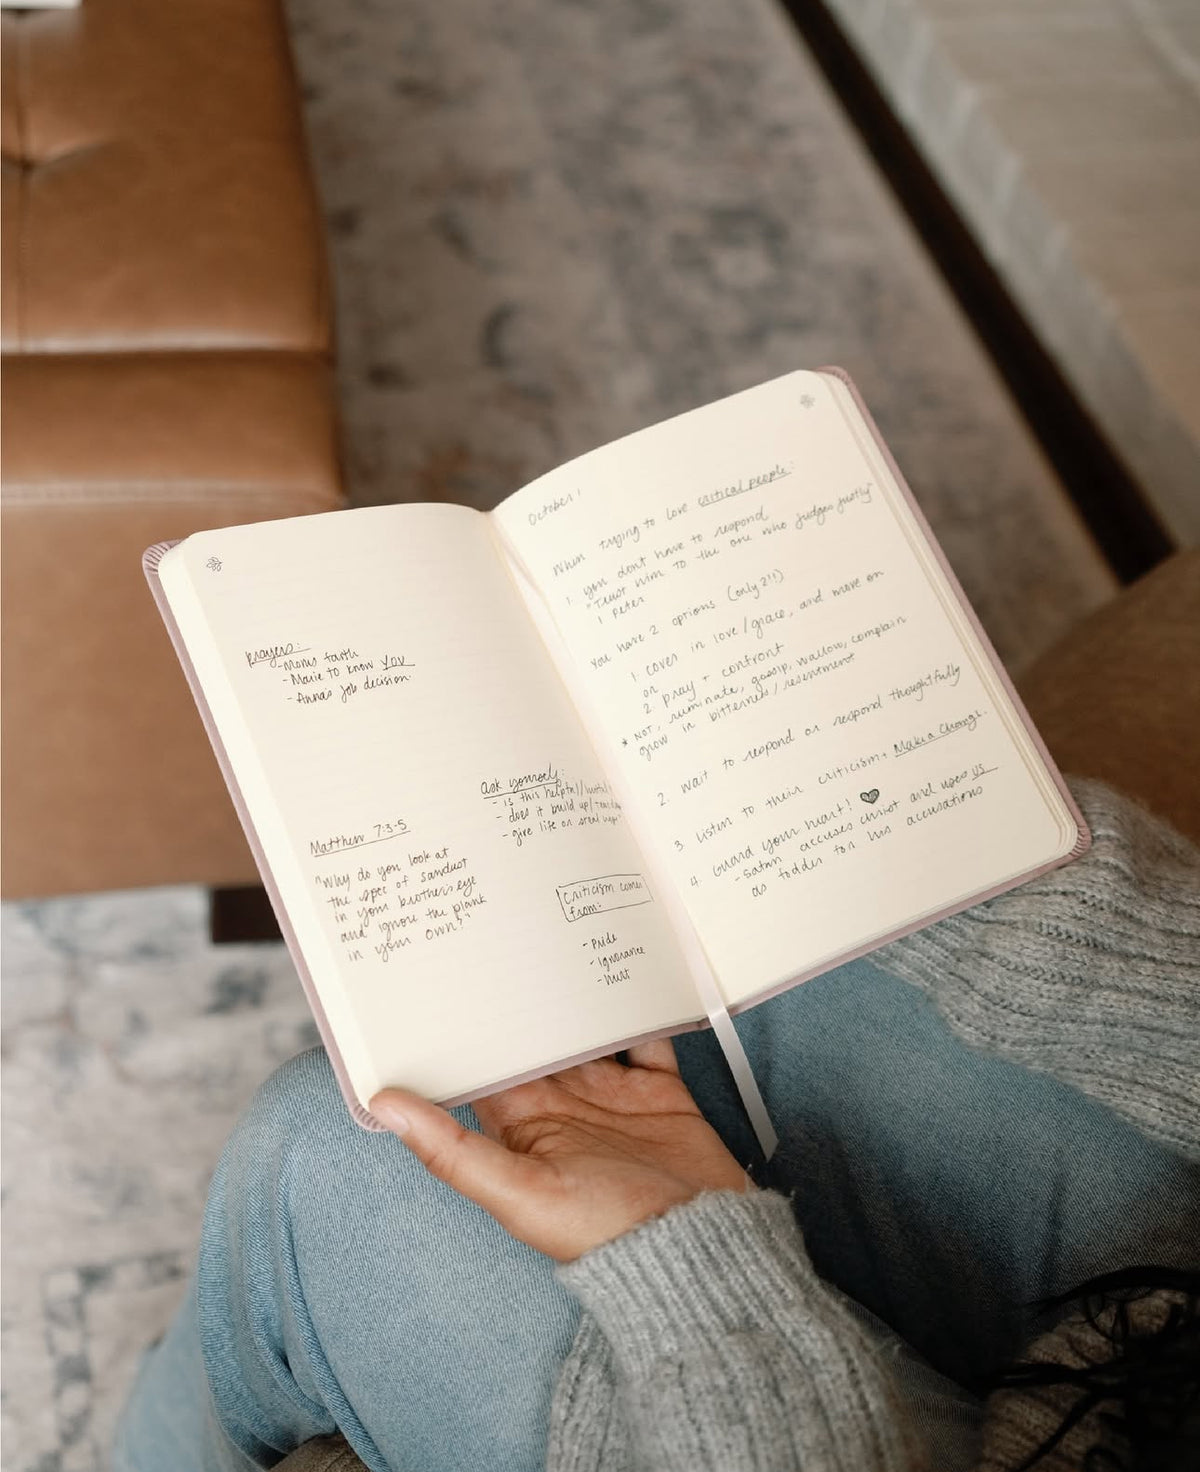 prayers:
- Moms faith
- Marie to know YOU
- Annas job decision
ask yourself:
- is this helpful/
- does it build up/
- give life or steal
Matthew 7:3-5
"Why do you look at
the spec of sawdust
in your brothers eye
and ignore the plank
in your own?"
Criticism comes
from:
- Pride
- Ignorance
- Hurt
October 1
When trying to love critical people:
1. you dont have to respond
"Trust him to the one who judges justly"
1 Peter
You have 2 options (only 2!!)
1 cover in love/grace, and move on
or
2 pray + confront
* NOT, ruminate, gossip, wallow, complain
grow in bitterness/resentment
2. Wait to respond or respond thoughtfully
3. Listen to their criticism + Make a Change.
4. Guard your heart! ♥
- Satan accuses christ and uses us
as fodder for his accusations